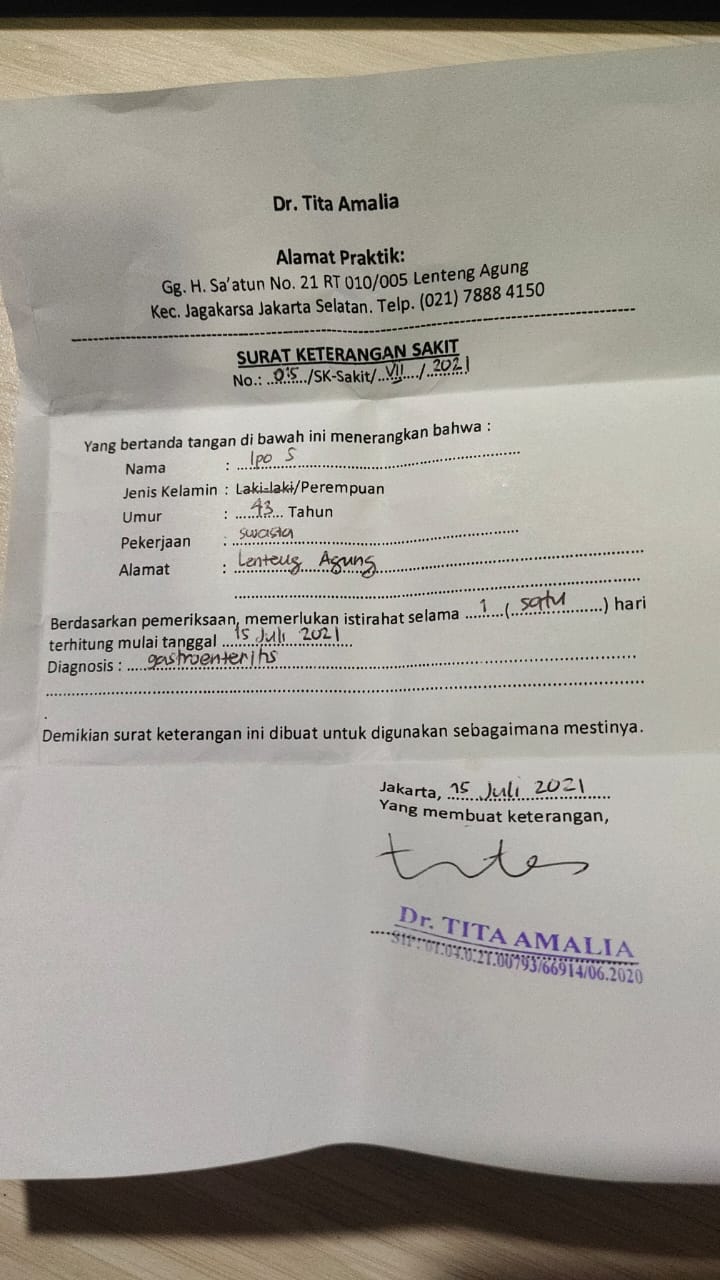 Dr. Tita Amalia
Alamat Praktik:
Gg. H. Sa'atun No. 21 RT 010/005 Lenteng Agung
Kec. Jagakarsa Jakarta Selatan. Telp. (021) 7888 4150
SURAT KETERANGAN SAKIT
No.: 015/SK-Sakit/VII/2021
Yang bertanda tangan di bawah ini menerangkan bahwa :
Nama : Ipo S
Jenis Kelamin : Laki-laki/Perempuan
Umur : 43 Tahun
Pekerjaan : swasta
Alamat : Lenteng Agung
Berdasarkan pemeriksaan, memerlukan istirahat selama 1 (satu) hari
terhitung mulai tanggal 15 Juli 2021
Diagnosis : gastroenteritis
Demikian surat keterangan ini dibuat untuk digunakan sebagaimana mestinya.
Jakarta, 15 Juli 2021
Yang membuat keterangan,
Dr. TITA AMALIA